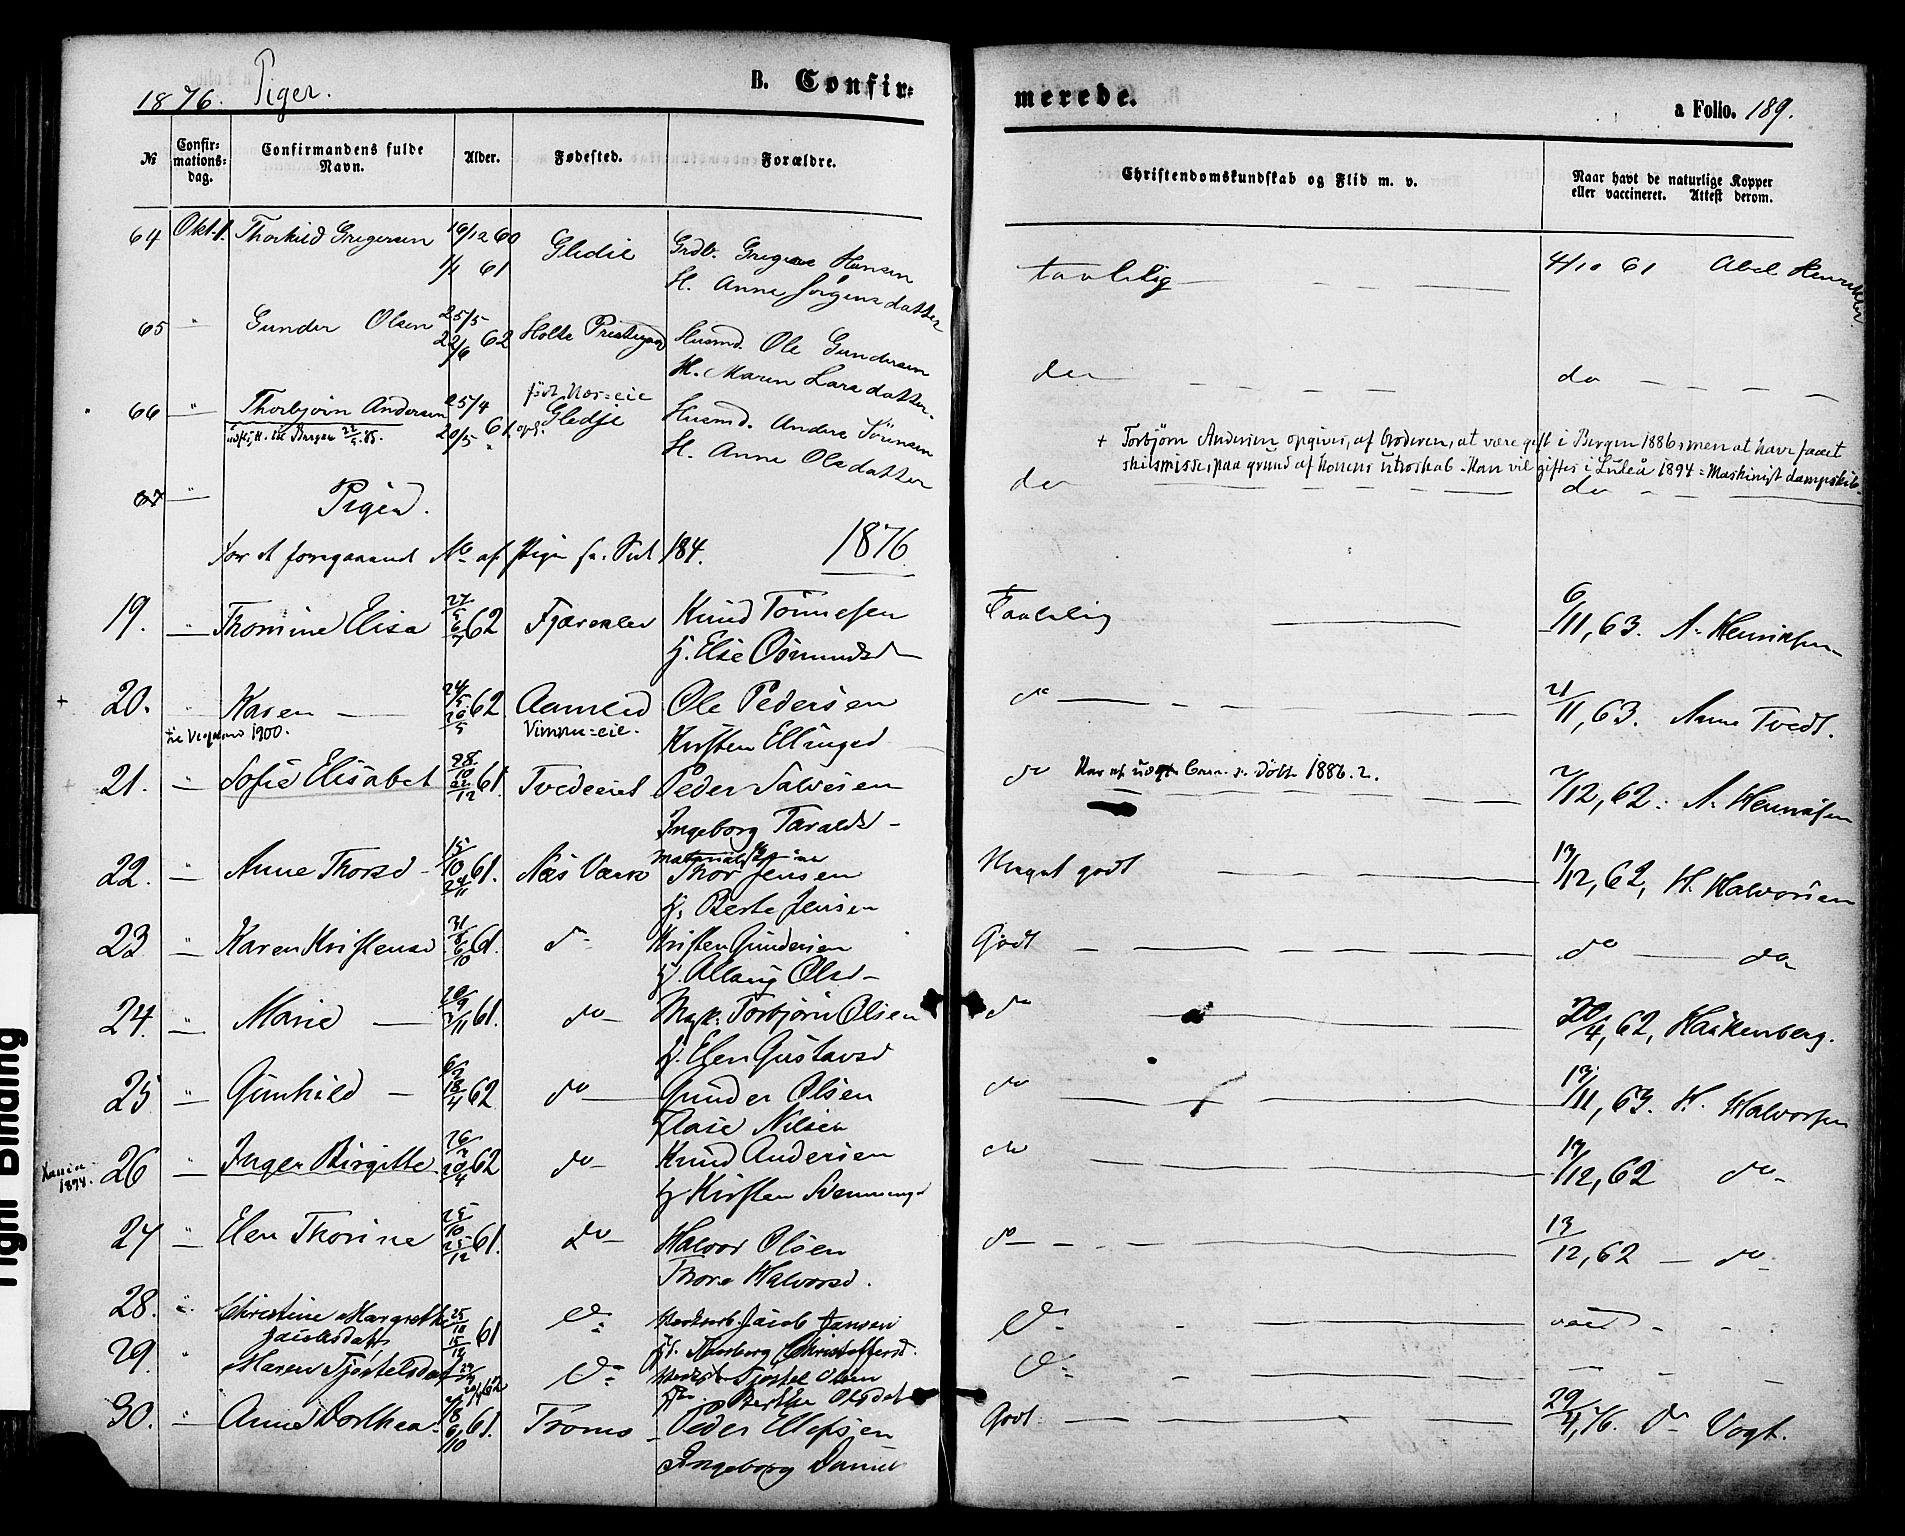 1876. Piger.
B. Confir=
merede.
a Folio. 189.
№
Confir-
mations-
dag.
Confirmandens fulde
Navn.
Alder.
Fødested.
Forældre.
Christendomskundskab og Flid m. v.
Naar havt de naturlige Kopper
eller vaccineret. Attest derom.
64 Okt. 1. Thorkild Gregersen 16/12 60 Gledje Grdb. Gregers Hansen
1/1 61 H. Anne Jørgensdatter
tavlelig 4/10 61 Abel Henriksen
65 " Gunder Olsen 25/5 62 Holte Prestegaard Husmd. Ole Gundersen
22/6 H. Maren Larsdatter.
do do
66 " Thorbjørn Andersen 25/4 61 født Næs=eie Husmd. Anders Sørensen
udfl. att. til Bergen 22/5 85. 20/5 opf. Gledje H. Anne Olsdatter
+ Torbjørn Andersen opgiver, af Broderen, at være gift i Bergen 1886, men at have faaet
skilsmisse, paa grund af konens utroskab. Han vil giftes i Luleå 1894 = Maskinist dampskib.
do do
67 " Piger.
For et foregaaende No af Piger se Side 184. 1876
19. Thomine Elisa 27/5 6/7 62 Fjæreneb Knud Tønnesen
H. Else Osmundsd
Tavlelig 6/11, 63. A. Henriksen
20. " Karen 24/5 62 Aamlid Ole Pedersen
1900. Vimme=eie. Kirsten Ellingsd
do 21/11, 63. Anne Tvedt.
21. " Sofie Elisabet 28/10 22/12 61. Tvedeeiet Peder Salvesen
Ingeborg Taralds
do 1886. 2/12, 62. A. Henriksen
22. " Anne Thorsd 15/10 24/11 61. Næs Værk Thor Jensen
H. Berte Jensen
Meget godt 13/12, 62, H. Halvorsen
23 " Karen Kristensd 31/8 6/10 61. do Kristen Gundersen
H. Aslaug Olsd
Godt do do
24. " Marie 20/9 3/11 61. do Mask: Torbjørn Olsen
H. Elen Gustavsd
do 20/4, 62, Haukenberg.
25 " Gunhild 6/3 18/4 62 do Gunder Olsen
Aase Nilsen
do 13/11, 63. H. Halvorsen
26 " Inger Birgitte 26/2 20/4 62 do Knud Andersen
1894. H Kirsten Svenningsd
do 13/12, 62 do
27 Elen Thorine 25/10 25/12 61. do Halvor Olsen
Thore Halvorsd.
do 13/12, 62 do
28. " Christine Margrethe 25/10 15/12 61 do Værksarb. Jacob Jansen
Jacobsdatt. H. Ingeborg Christoffersd.
do
29. " Maren Tjøstelsdat 62 do Tjøstel Olsen
Berthe Olsdat
do
30. " Anne Dorthea 8 6/10 61. Tromø Peder Ellefsen
Ingeborg Daniels
Godt. 29/4, 76. Dr Vogt.
Tight Binding